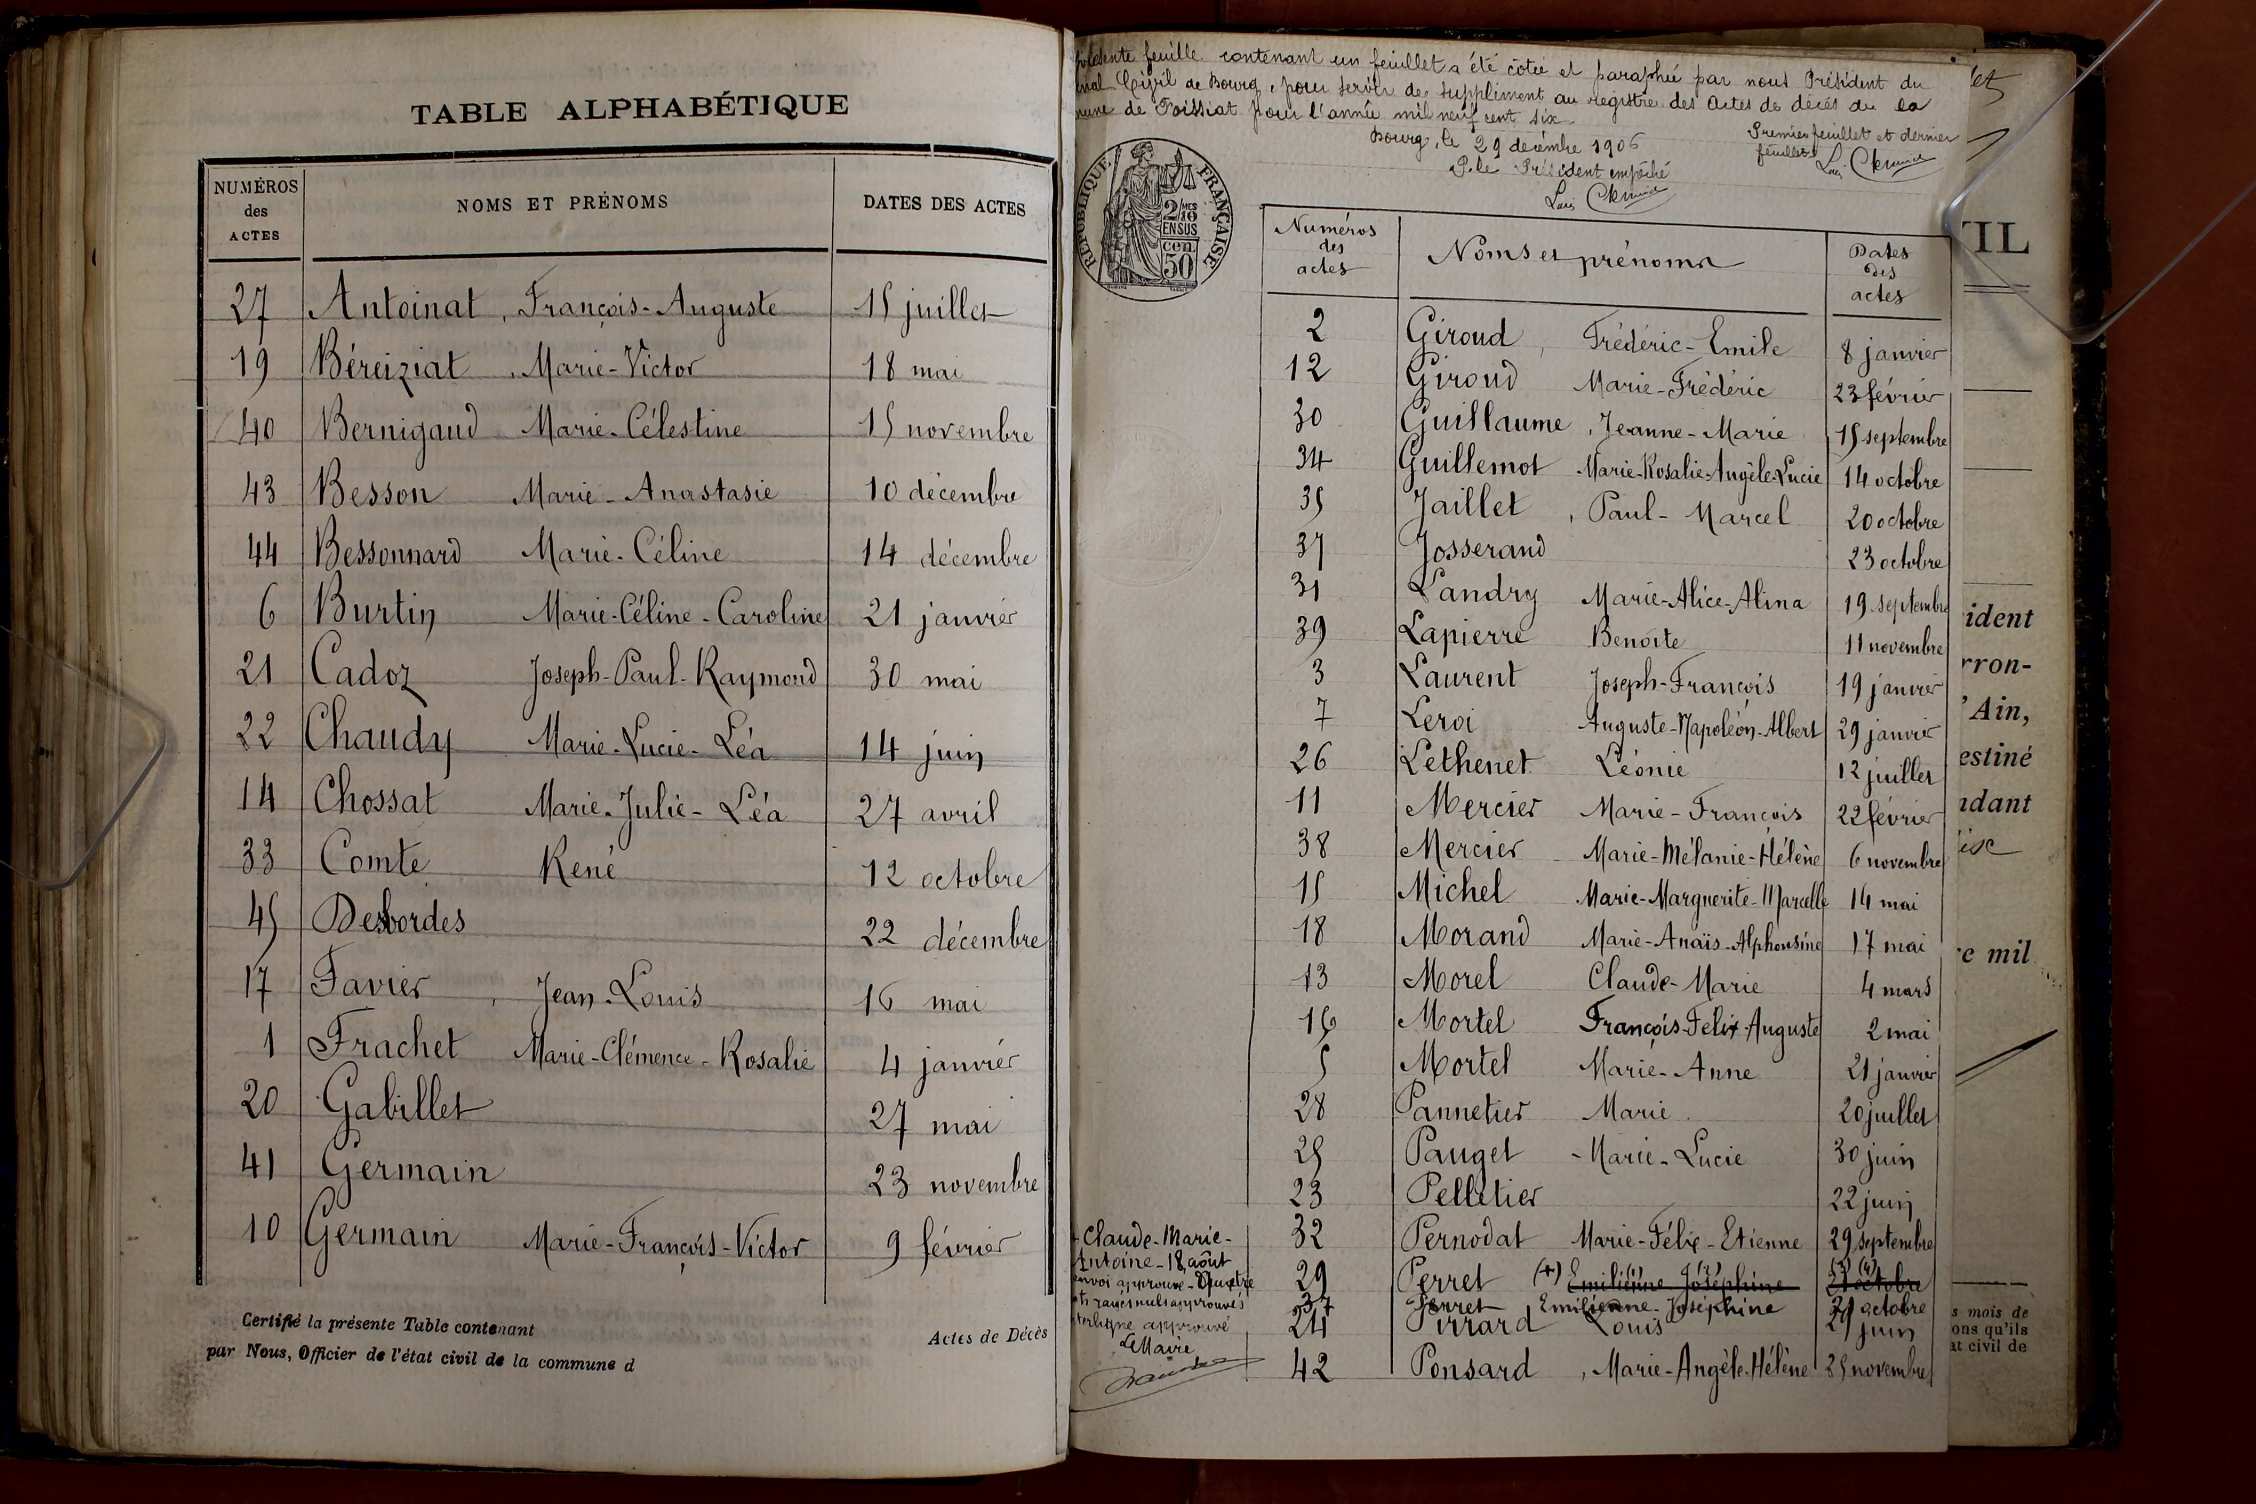 TABLE ALPHABÉTIQUE
NUMÉROS
des
ACTES
NOMS ET PRÉNOMS
DATES DES ACTES
27 Antoinat, François-Auguste 15 juillet
19 Béreiziat, Marie-Victor 18 mai
40 Bernigaud Marie-Célestine 15 novembre
43 Besson Marie-Anastasie 10 décembre
44 Bessonnard Marie-Céline 14 décembre
6 Burtin Marie-Céline-Caroline 21 janvier
21 Cadoz Joseph-Paul-Raymond 30 mai
22 Chaudy Marie-Lucie-Léa 14 juin
14 Chossat Marie-Julie-Léa 27 avril
33 Comte René 12 octobre
45 Desbordes 22 décembre
17 Favier, Jean-Louis 16 mai
1 Frachet Marie-Clémence-Rosalie 4 janvier
20 Gabillet 27 mai
41 Germain 23 novembre
10 Germain Marie-François-Victor 9 février
Certifié la présente Table contenant
Actes de Décès
par Nous, Officier de l'état civil de la commune d
présente feuille contenant un feuillet a été cotée et paraphée par nous Président du
unal Civil de Bourg, pour servir de supplément au registre des actes de décès de la
mune de Foissiat pour l'année mil neuf cent six
Bourg, le 29 décembre 1906
P. le Président empêché
Premier feuillet et dernier
feuillet
RÉPUBLIQUE FRANÇAISE
2/10MES
EN SUS
50 cen.
Numéros
des
actes
Noms et prénoms
Dates
des
actes
2 Giroud, Frédéric-Emile 8 janvier
12 Giroud Marie-Frédéric 23 février
30 Guillaume, Jeanne-Marie 15 septembre
34 Guillemot Marie-Rosalie-Angèle-Lucie 14 octobre
35 Jaillet, Paul-Marcel 20 octobre
37 Josserand 23 octobre
31 Landry Marie-Alice-Alina 19 septembre
39 Lapierre Benoite 11 novembre
3 Laurent Joseph-François 19 janvier
7 Leroi Auguste-Napoléon-Albert 29 janvier
26 Lethenet Léonie 12 juillet
11 Mercier Marie-François 22 février
38 Mercier Marie-Mélanie-Hélène 6 novembre
15 Michel Marie-Marguerite-Marcelle 14 mai
18 Morand Marie-Anaïs-Alphonsine 17 mai
13 Morel Claude-Marie 4 mars
16 Mortel François-Felix-Auguste 2 mai
5 Mortel Marie-Anne 21 janvier
28 Pannetier Marie 20 juillet
25 Pauget - Marie-Lucie 30 juin
23 Pelletier 22 juin
32 Pernodat Marie-Félix-Etienne 29 septembre
29 Perret (+) Emilienne Joséphine 21 octobre
Perret Emilienne-Joséphine 21 octobre
24 Perrard Louis 29 juin
42 Ponsard, Marie-Angèle-Hélène 25 novembre
+ Claude-Marie-
Antoine-18 août
envoi approuvé-Quatre
ots rayés nuls approuvés
nterligne approuvé
Le Maire
TIL
ident
rron-
'Ain,
estiné
ndant
e mil
s mois de
ons qu'ils
at civil de